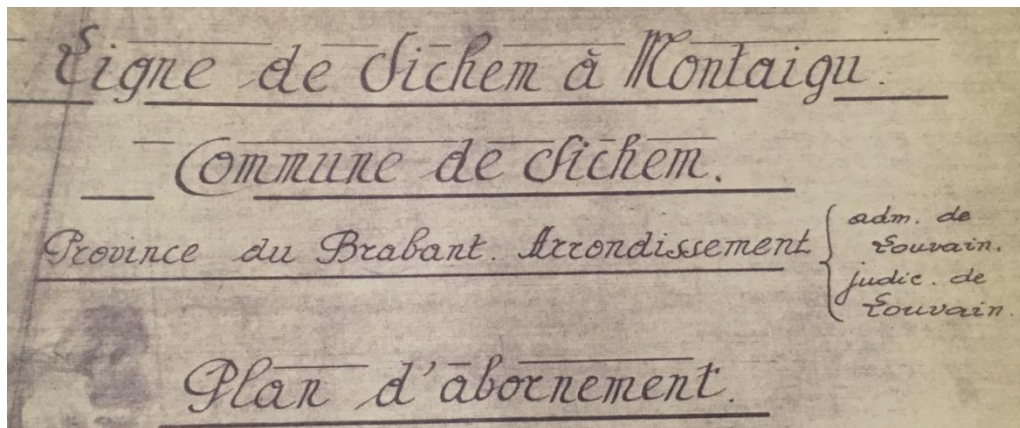 Ligne de Sichem à Montaigu.
Commune de Sichem.
Province du Brabant. Arrondissement { adm. de
Louvain.
judic. de
Louvain.
Plan d'abornement.